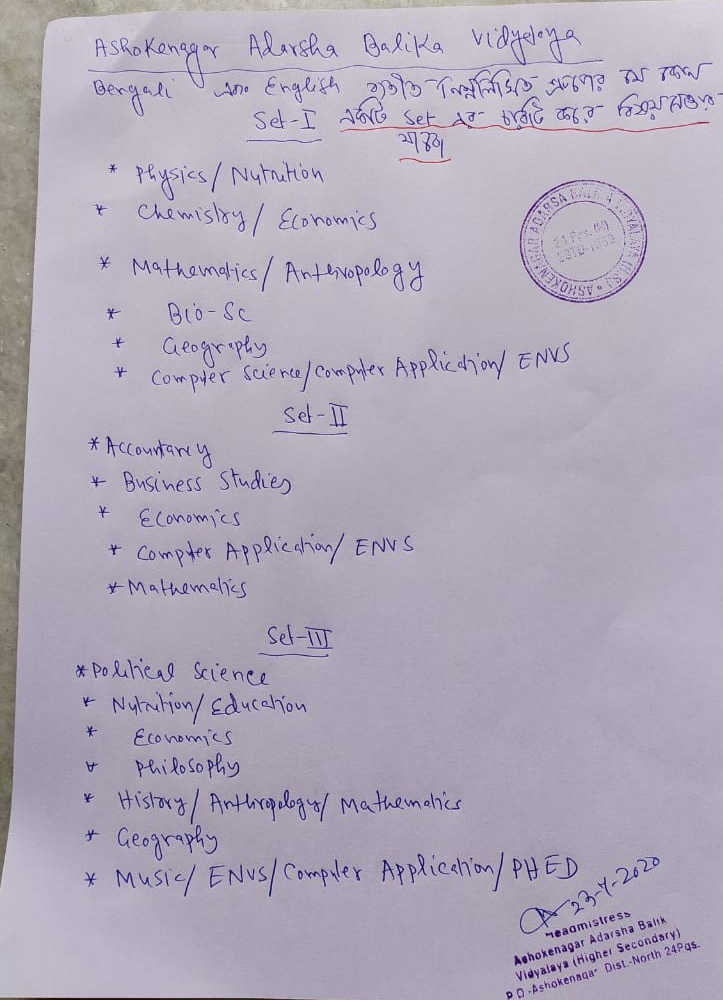 Ashokenagar Adarsha Balika Vidyalaya
Bengali এবং English ব্যতীত নিম্নলিখিত যে কোন
Set-I একটি Set এর চারটি করে বিষয় নেওয়া
যাবে
* Physics/ Nutrition
* Chemistry/ Economics
* Mathematics/ Anthropology
* Bio-Sc
* Geography
* Computer Science/Computer Application/ ENVS
Set-II
* Accountancy
* Business Studies
* Economics
* Computer Application/ ENVS
* Mathematics
Set-III
* Political Science
* Nutrition/ Education
* Economics
* Philosophy
* History/ Anthropology/ Mathematics
* Geography
* Music/ ENVS/ Computer Application/ PHED
ASHOKENAGAR ADARSA BALIKA VIDYALAYA (H.S.)
ESTD-1953
Headmistress
Ashokenagar Adarsha Balik
Vidyalaya (Higher Secondary)
P.O-Ashokenagar Dist.-North 24Pgs.